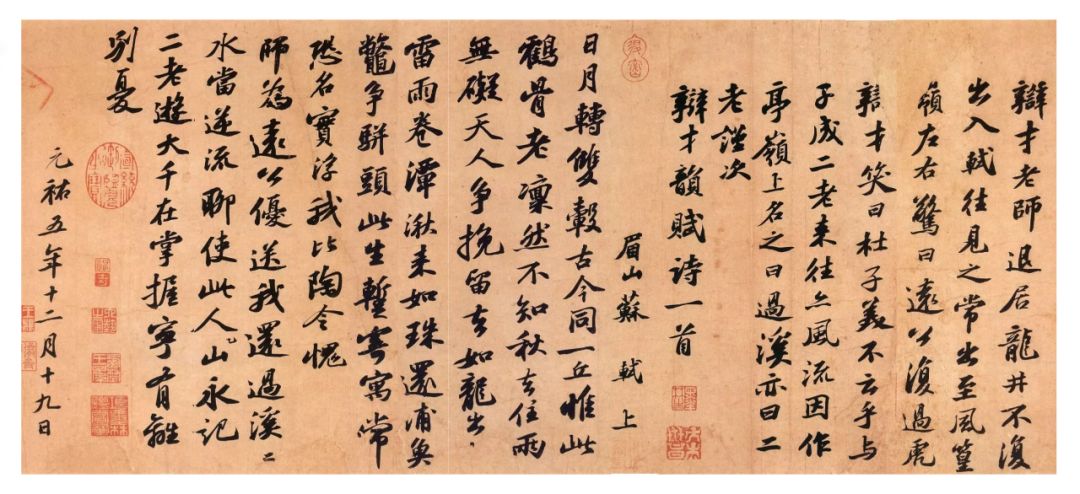 辯才老師退居龍井不復
出入軾往見之常出至風篁
嶺左右驚曰遠公復過虎
辯才笑曰杜子美不云乎與
子成二老來往亦風流因作
亭嶺上名之曰過溪亦曰二
老謹次
辯才韻賦詩一首
眉山蘇 軾 上
日月轉雙轂古今同一丘惟此
鶴骨老凜然不知秋去住兩
無礙天人爭挽留去如龍出
雷雨卷潭湫來如珠還浦魚
鼈爭駢頭此生暫寄寓常
恐名實浮我比陶令愧
師為遠公優送我還過溪〻
水當逆流聊使此人山永記
二老遊大千在掌握寧有離
別憂
元祐五年十二月十九日